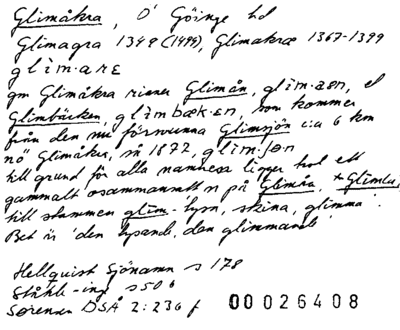 Glimåkra, Ö Göinge hd
Glimagra 1349 (1499), Glimakræ 1367-1399
glìm·arɛ
gm Glimåkra rinner Glimån, glìm·aən, el
Glimbäcken, glìmbæk·ən, som kommer
från den nu försvunna Glimsjön c:a 6 km
nö Glimåkra, sn 1872, glìm·ʃøn
till grund för alla namnen ligger hd ett
gammalt osammansatt n på Glimån, *Glimla,
till stammen glīm- 'lysa, skina, glimma'.
Bet är 'den lysande, den glimmande'
Hellquist Sjönamn s 178
Ståhle -inge s 506
Sørensen DSÅ 2:236 f
00026408